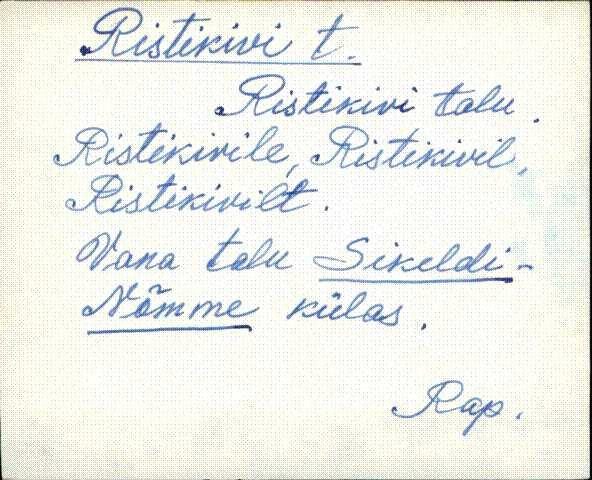 Ristikivi t.
Ristikivi talu.
Ristikivile, Ristikivil,
Ristikivilt.
Vana talu Sikeldi-
Nõmme külas.
Rap.